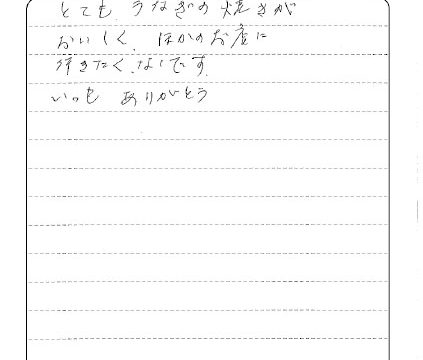 とても うなぎの焼きが
おいしく、ほかのお店に
行きたくないです。
いつも ありがとう